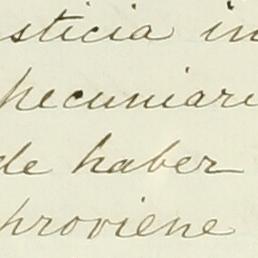 sticia in
pecuniari
de haber
proviene